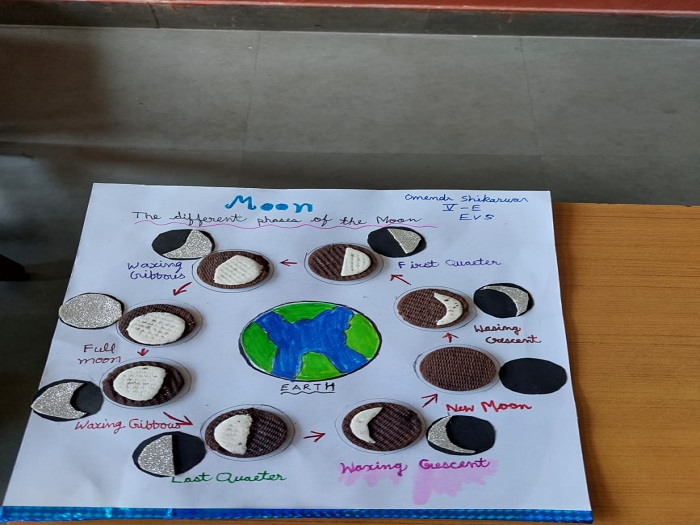 Moon
Omendr Shikarwar
V-E
EVS
The different phases of the Moon
Waxing
Gibbous
First Quarter
Waxing
Crescent
Full
moon
EARTH
New Moon
Waxing Gibbous
Last Quarter
Waxing Crescent